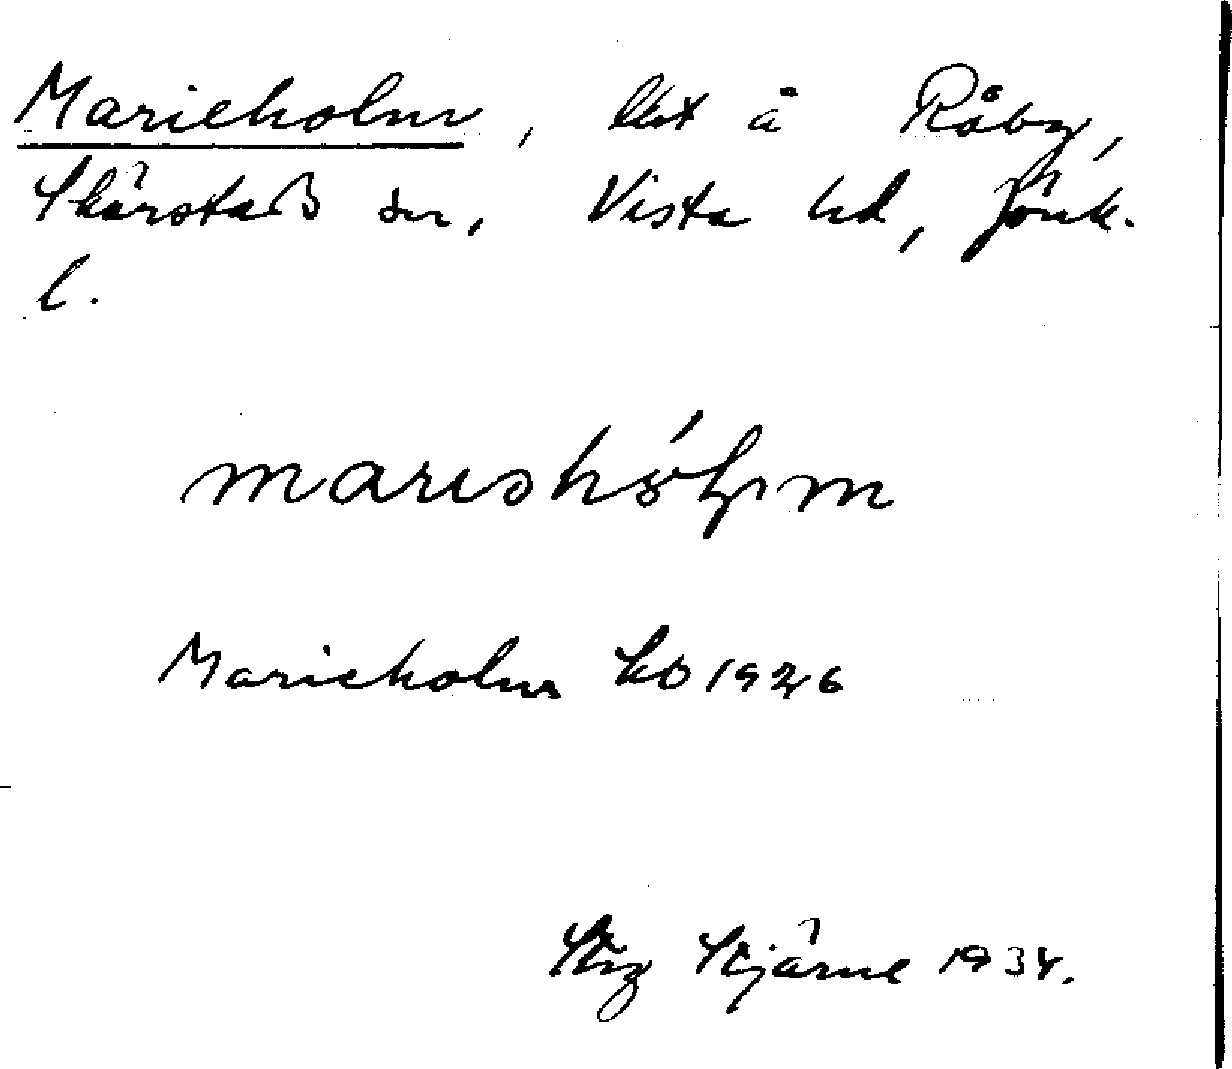 Marieholm, lht å Råby,
Skärstads sn, Vista hd, Jönk.
l.
Marieholm kb 1926
Stig Stjärne 1934.